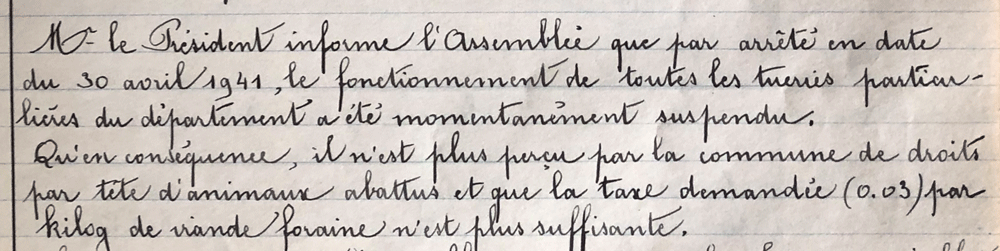 Mr le Président informe l'Assemblée que par arrêté en date
du 30 avril 1941, le fonctionnement de toutes les tueries particu-
lières du département a été momentanément suspendu.
Qu'en conséquence, il n'est plus perçu par la commune de droits
par tête d'animaux abattus et que la taxe demandée (0.03) par
kilog de viande foraine n'est plus suffisante.